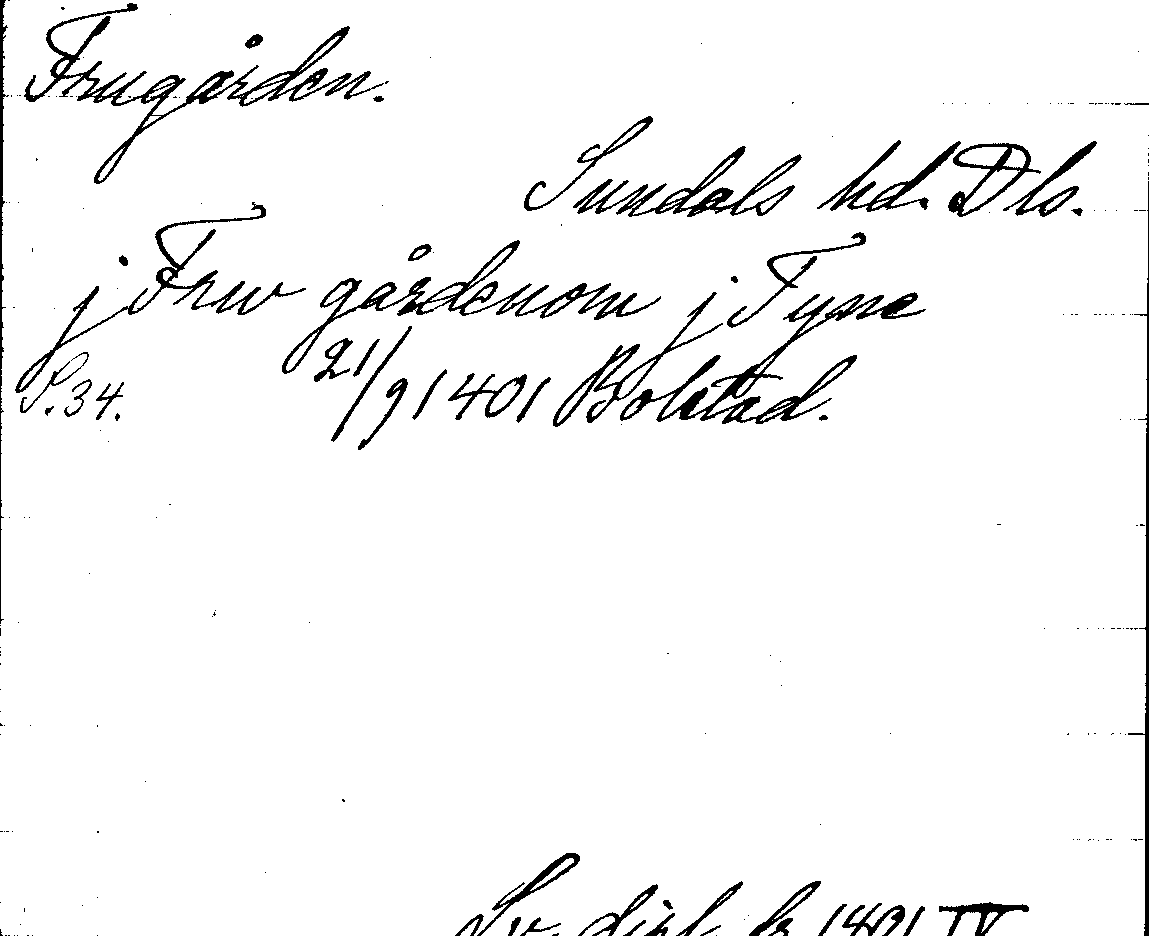 Frugården.
Sundals hd. Dls.
j Frw gårdenom j Tyne
S. 34. 21/9 1401 Bolstad.
Sv. dipl. fr 1401 IV